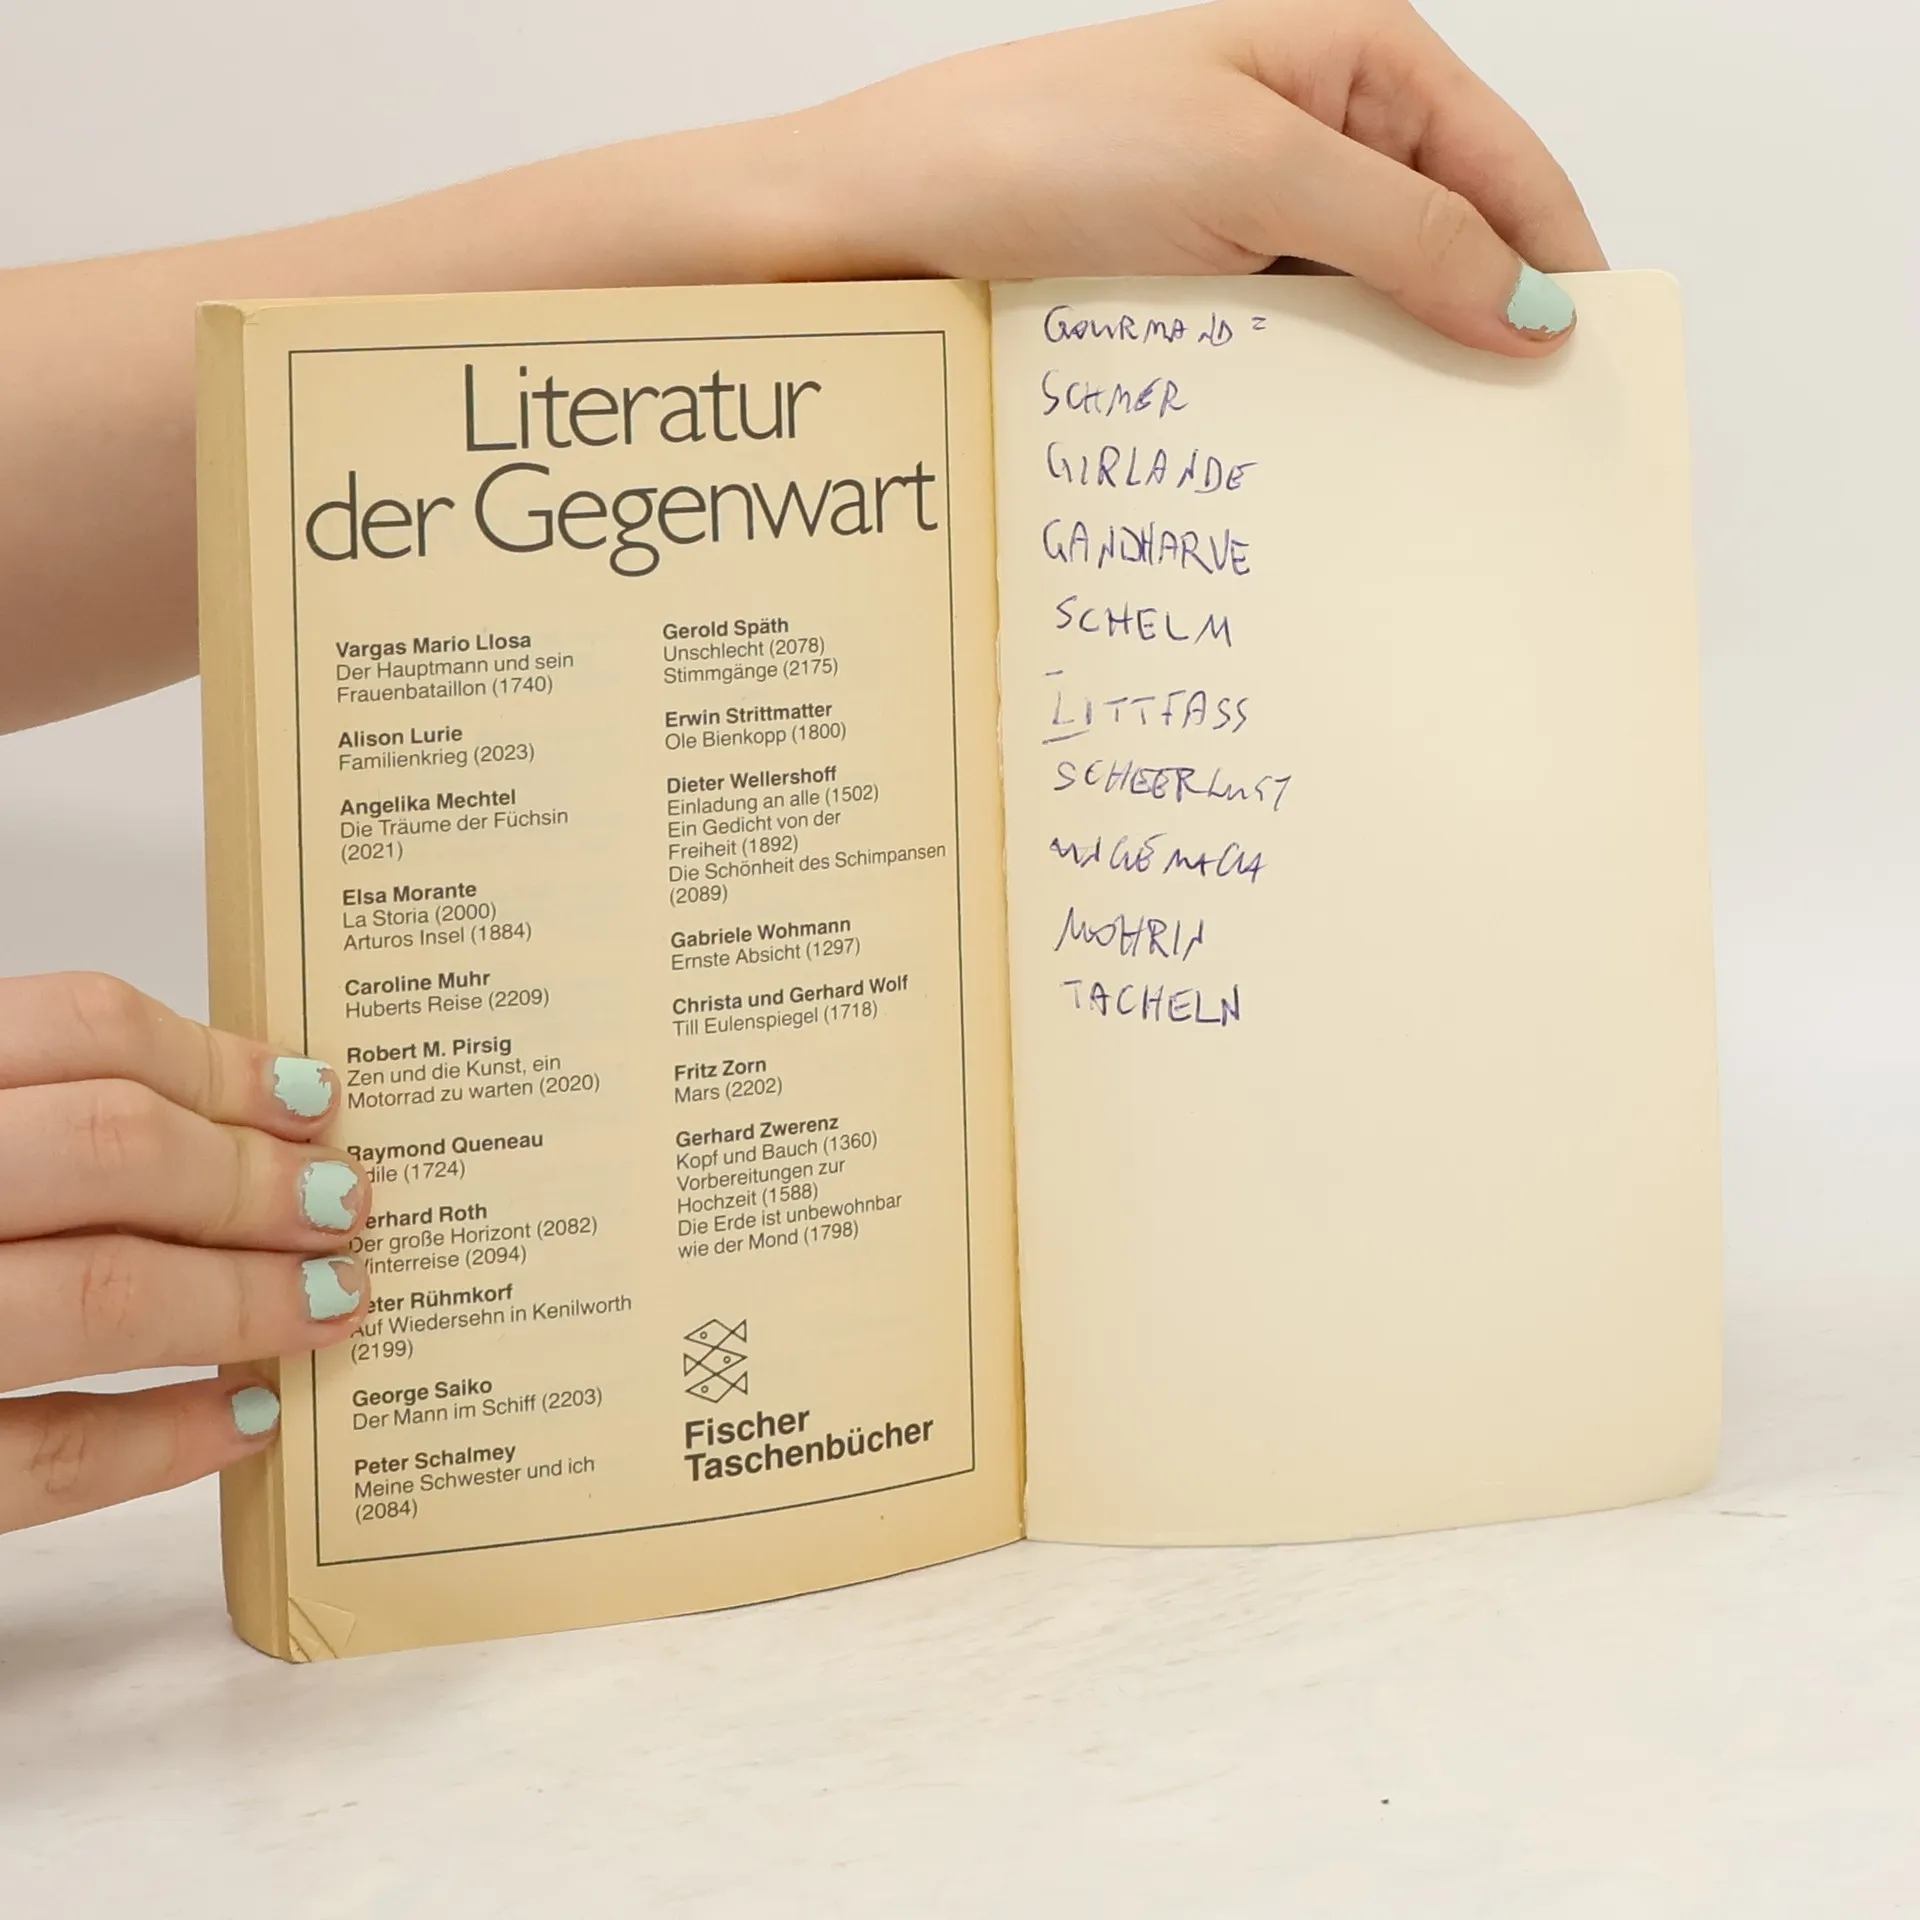 Literatur
der Gegenwart
Vargas Mario Llosa
Der Hauptmann und sein
Frauenbataillon (1740)
Alison Lurie
Familienkrieg (2023)
Angelika Mechtel
Die Träume der Füchsin
(2021)
Elsa Morante
La Storia (2000)
Arturos Insel (1884)
Caroline Muhr
Huberts Reise (2209)
Robert M. Pirsig
Zen und die Kunst, ein
Motorrad zu warten (2020)
Raymond Queneau
dile (1724)
erhard Roth
Der große Horizont (2082)
interreise (2094)
eter Rühmkorf
Auf Wiedersehn in Kenilworth
(2199)
George Saiko
Der Mann im Schiff (2203)
Peter Schalmey
Meine Schwester und ich
(2084)
Gerold Späth
Unschlecht (2078)
Stimmgänge (2175)
Erwin Strittmatter
Ole Bienkopp (1800)
Dieter Wellershoff
Einladung an alle (1502)
Ein Gedicht von der
Freiheit (1892)
Die Schönheit des Schimpansen
(2089)
Gabriele Wohmann
Ernste Absicht (1297)
Christa und Gerhard Wolf
Till Eulenspiegel (1718)
Fritz Zorn
Mars (2202)
Gerhard Zwerenz
Kopf und Bauch (1360)
Vorbereitungen zur
Hochzeit (1588)
Die Erde ist unbewohnbar
wie der Mond (1798)
Fischer
Taschenbücher
GOURMAND =
SCHMER
GIRLANDE
GANDHARVE
SCHELM
LITTFASS
SCHEERLUST
MOHRIN
TACHELN